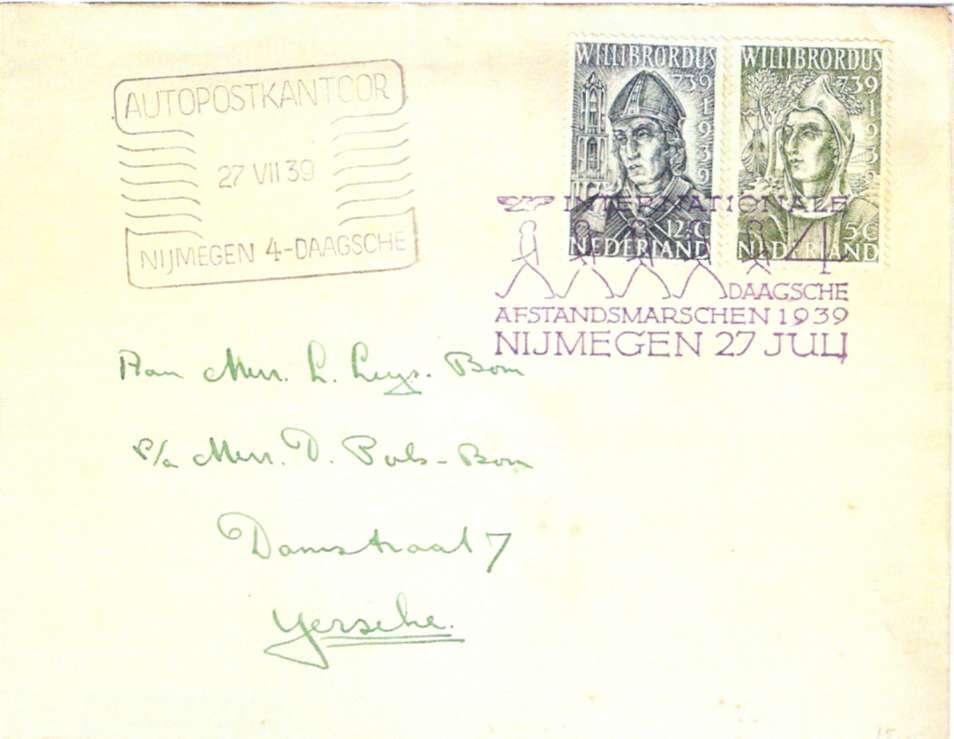 AUTOPOSTKANTOOR
27 VII 39
NIJMEGEN 4-DAAGSCHE
WILLIBRORDUS
739
1939
12½ C.
NEDERLAND
WILLIBRORDUS
739
1939
5 C
NEDERLAND
INTERNATIONALE
4
DAAGSCHE
AFSTANDSMARSCHEN 1939
NIJMEGEN 27 JULI
Aan Mevr. L. Leys-Bom
P/a Mevr. D. Pols-Bom
Damstraat 7
Yerseke.